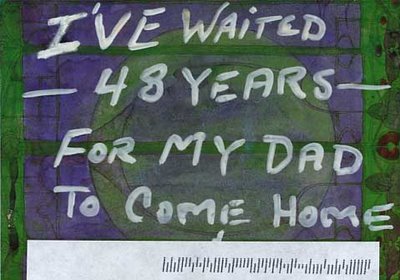 I'VE WAITED
— 48 YEARS —
FOR MY DAD
TO COME HOME